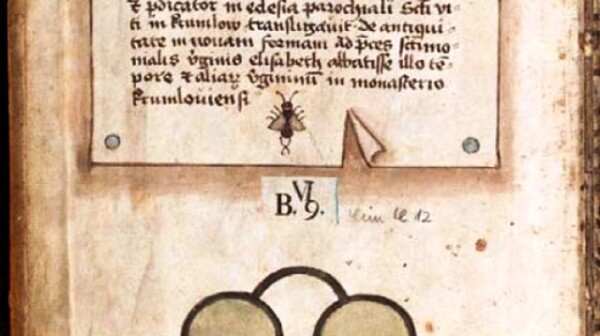 & p̄dicator in ecclesia parochiali Scti̅ vi-
ti in krumlow transsumpsit de antiqui-
tate in nouam formam ad p̄ces scti̅mo-
nialis v̓ginis elisabeth abbatisse illo te̅-
pore & aliaꝝ v̓ginum in monasterio
krumlouiensi
B.VI9.
12